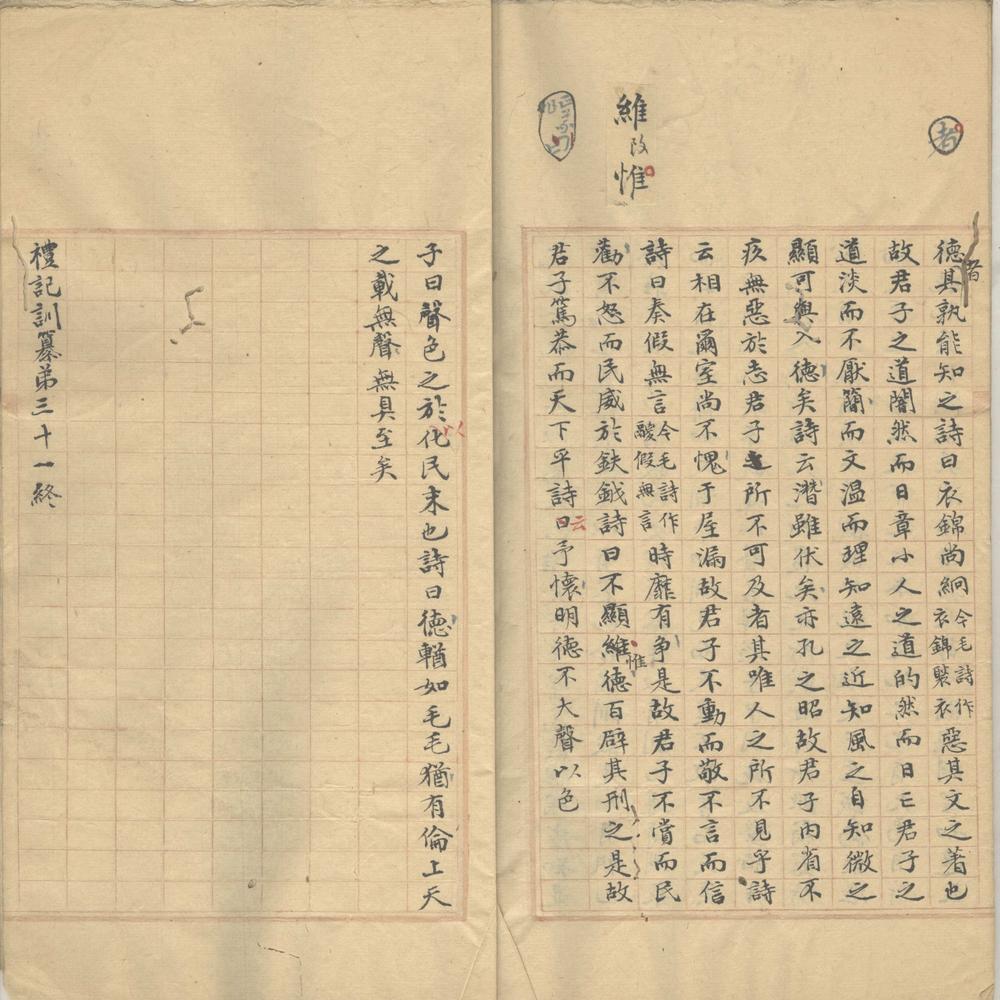 者
維改惟
德其孰能知之詩曰衣錦尚絅今毛詩作衣錦褧衣惡其文之著也
者
故君子之道闇然而日章小人之道的然而日亡君子之
道淡而不厭簡而文溫而理知遠之近知風之自知微之
顯可與入德矣詩云潛雖伏矣亦孔之昭故君子內省不
疚無惡於志君子之所不可及者其唯人之所不見乎詩
云相在爾室尚不愧于屋漏故君子不動而敬不言而信
詩曰奏假無言今毛詩作鬷假無言時靡有爭是故君子不賞而民
勸不怒而民威於鈇鉞詩曰不顯維德百辟其刑之是故
惟
君子篤恭而天下平詩曰予懷明德不大聲以色
云
子曰聲色之於化民末也詩曰德輶如毛毛猶有倫上天
以
之載無聲無臭至矣
禮記訓纂弟三十一終